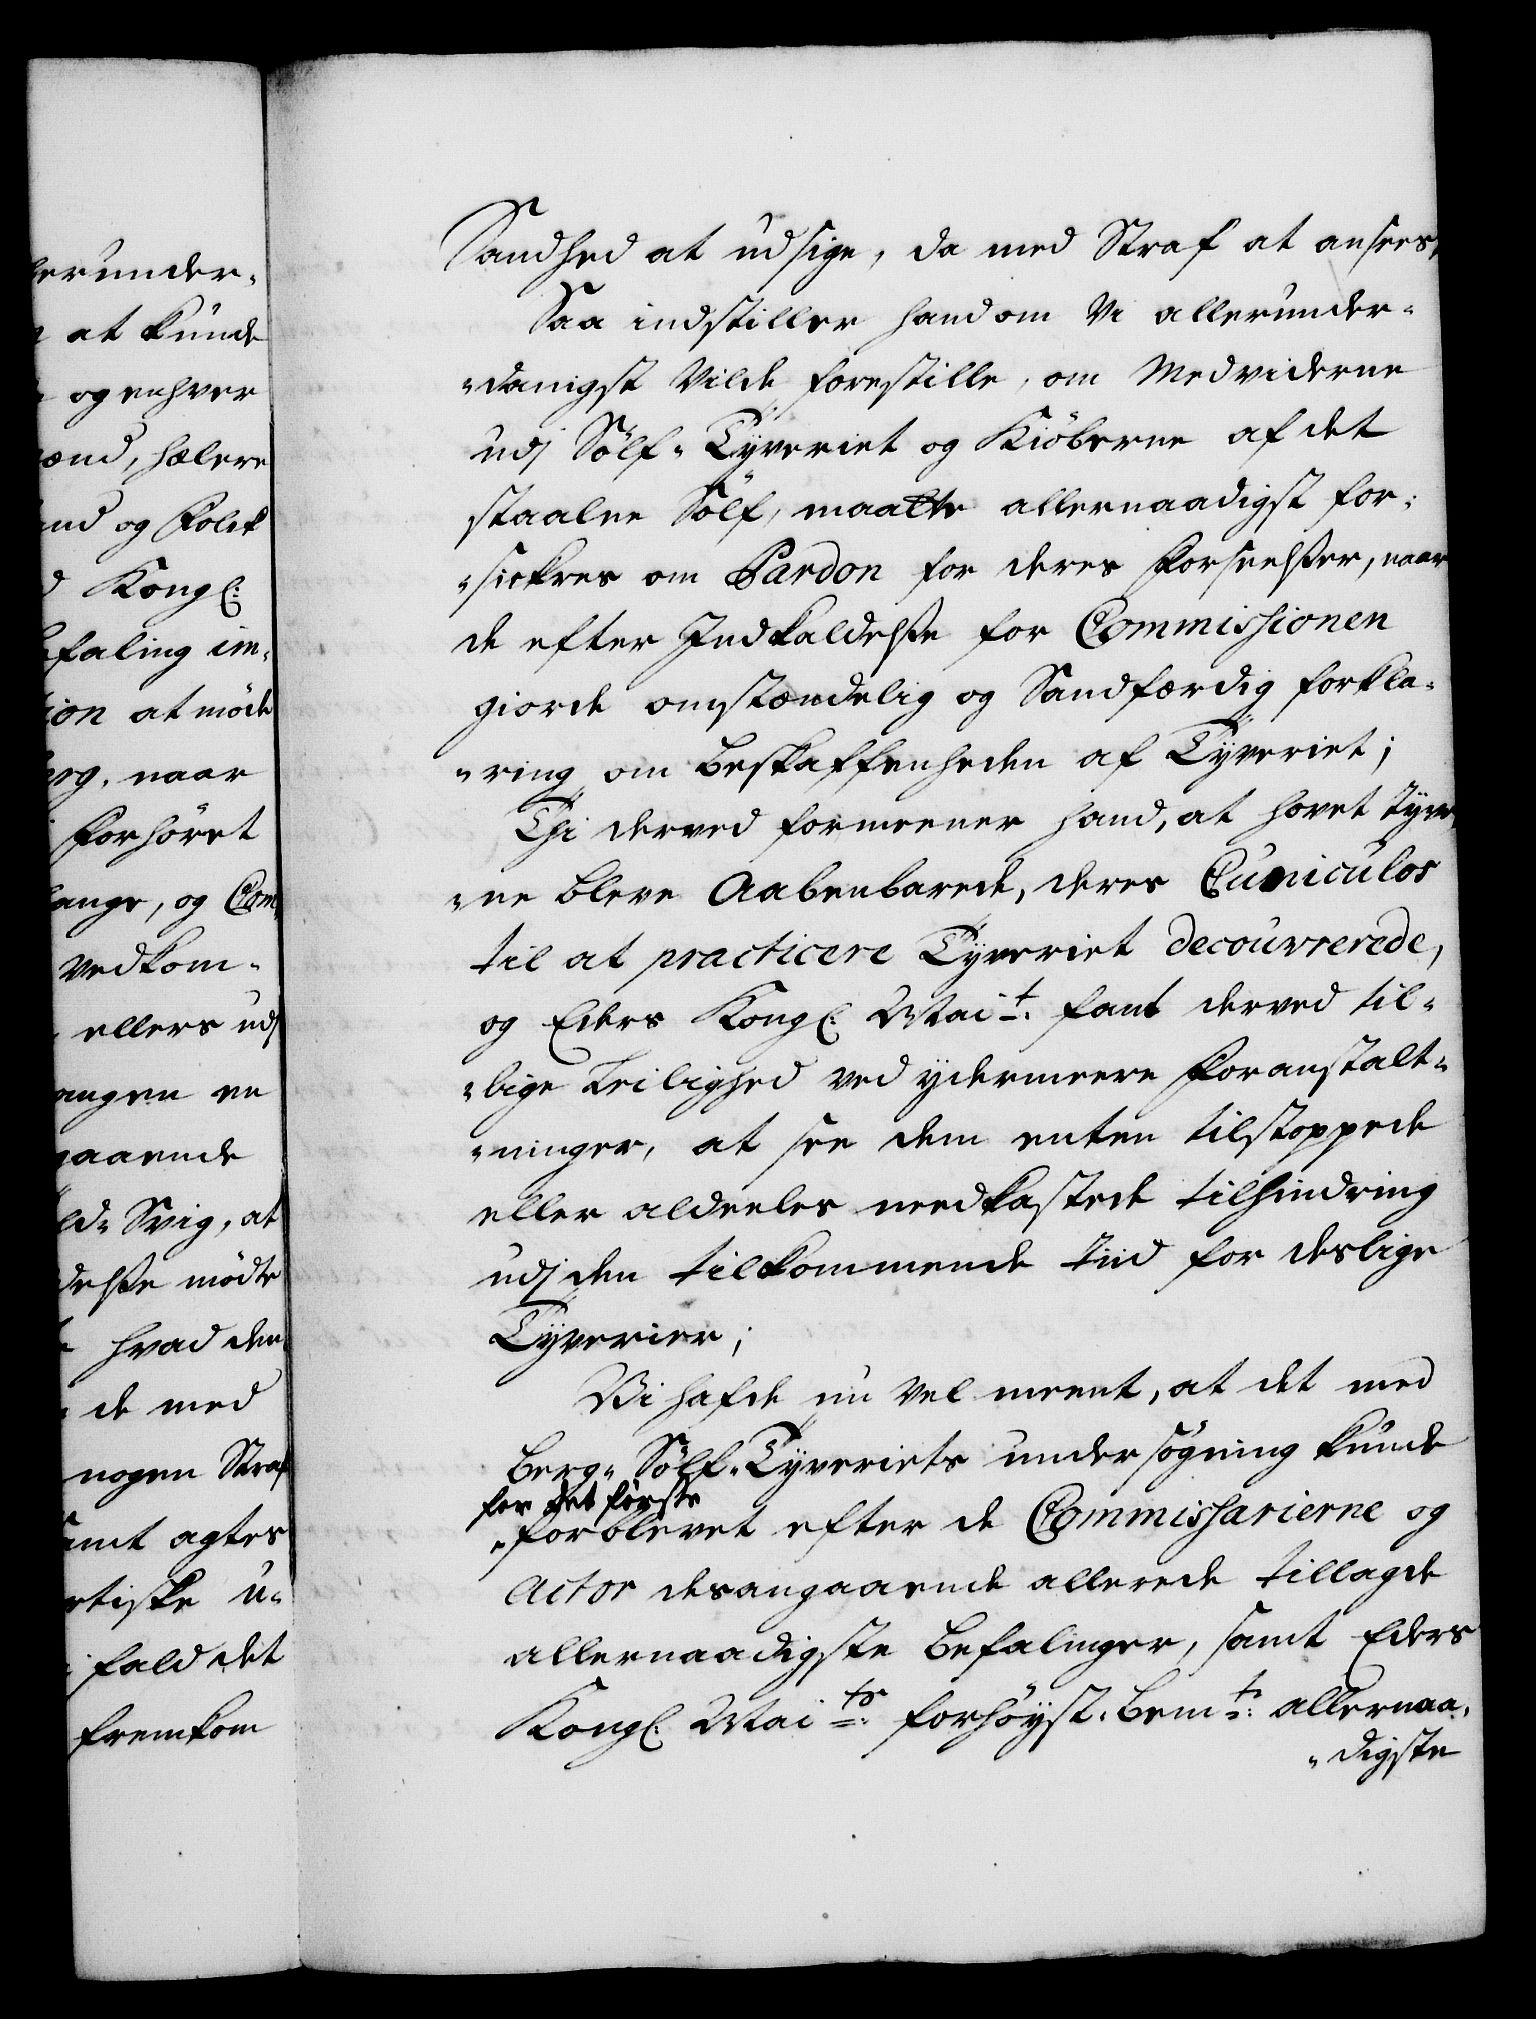 lerunder-
at kunde
og enhver
ænd, hælere
and og Folck
Kongl:
befaling im-
sion at møde
berg, naar
Forhöret
lange, og Com-
Vedkom-
ellers udj
angen en
gaaende
ld- Svig, at
delsse mödte
hvad den
de med
nogen Straf
samt agtes
rtiske u-
fald det
fremkom
Sandhed at udsige, da med Straf at ansees,
Saa indstiller hand om Vi allerunder-
-danigst Vilde forestille, om Medviderne
udj Sölf-Tyveriet og Kiöberne af det
staalne Sölf, maatte allernaadigst for-
-sickres om Pardon for deres Forseelsser, naar
de efter Indkaldelsse for Commissionen
giorde omstændelig og Sandfærdig forkla-
-ring om beskaffenheden af Tyveriet;
Thi derved formeener hand, at hovet Tyve-
-ne bleve Aabenbarede, deres Cuniculos
til at practicere Tyveriet decouvrerede,
og Eders Kongl: Mait: fant derved til-
-lige Leilighed ved ydermeere Foranstalt-
-ninger, at see dem enten tilstoppede
eller aldeeles needkastede tilhindring
udj den tilkommende tiid for deslige
Tyverier;
Vi hafde nu vel meent, at det med
Berg-Sölf-Tyveriets undersögning kunde
for det förste
-forblevet efter de Commissarierne og
Actor desangaaende allerede tillagde
allernaadigste Befalinger, samt Eders
Kongl: Maits: forhöyst-bemte: allernaa-
-digste